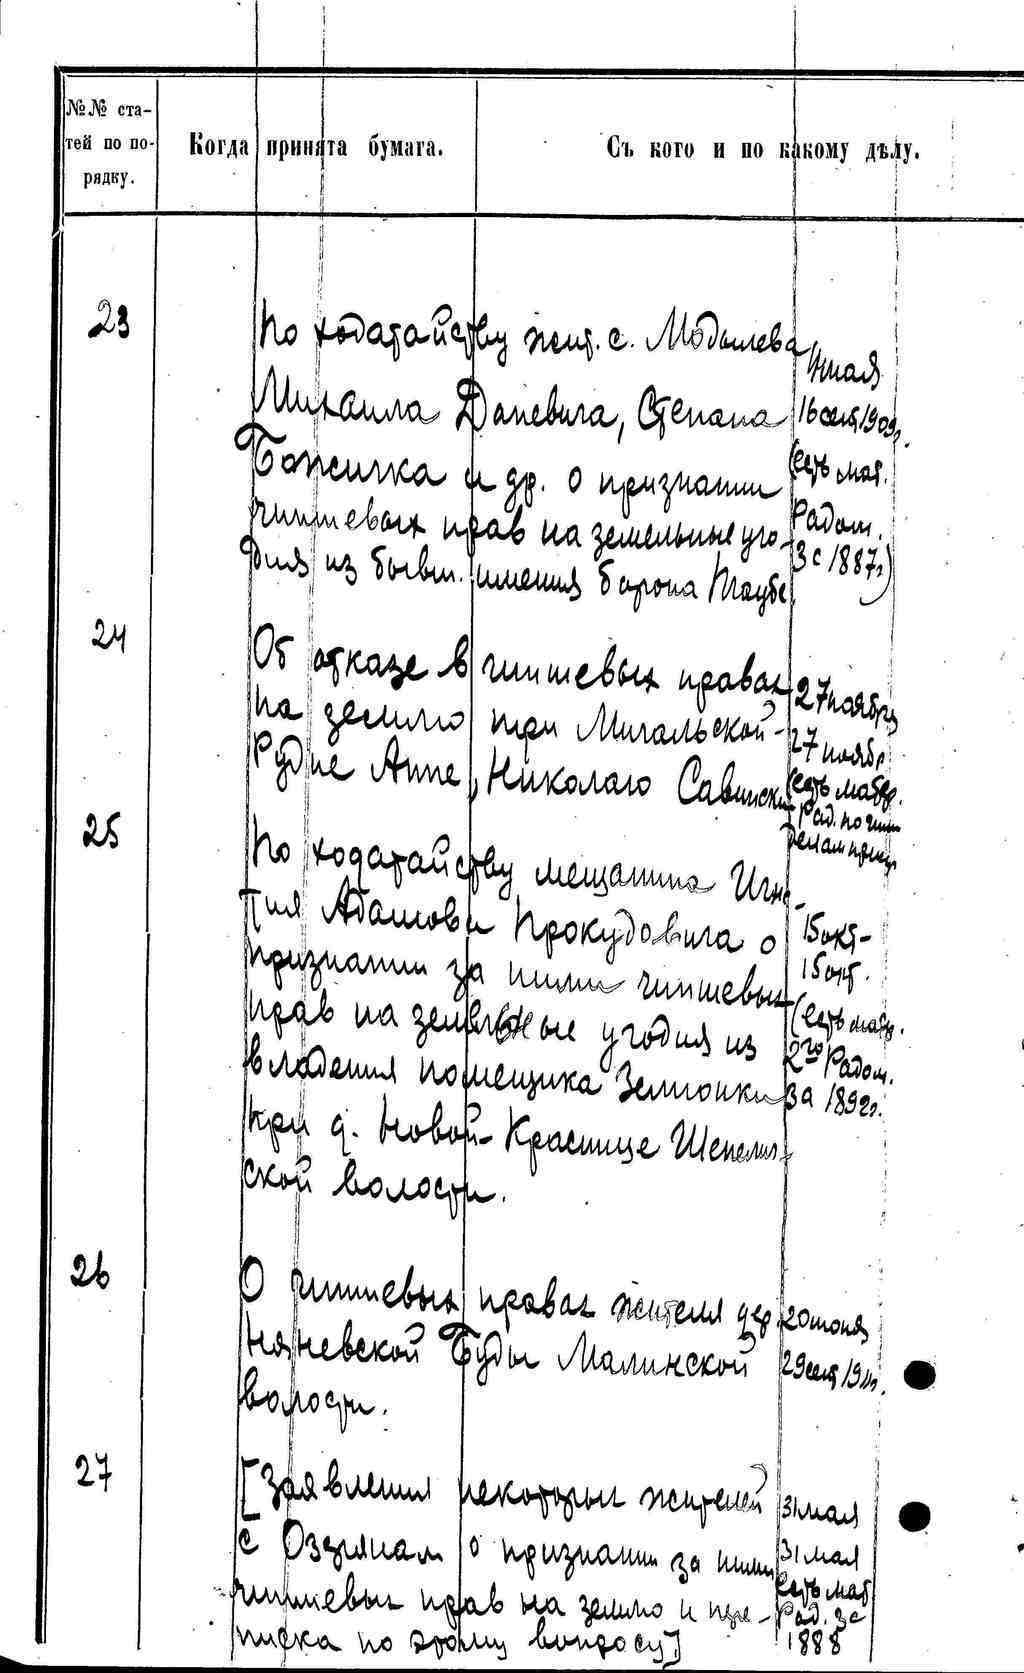 №№ ста-
тей по по-
рядку.
Когда принята бумага.
Съ кого и по какому дѣлу.
23
По ходатайству жит. с. Модылева
Михаила Даневича, Степана
Божичка и др. о признании
чиншевых прав на земельные уго-
дия из бывш. имения барона Таубе
мая
16 сент 1909г.
(есть мат.
Радом.
з с 1887г)
24
Об отказе в чиншевых правах
на землю при Мигальской-
Рудне Анне, Николаю Савински
27 ноября
27 ноябр
(есть матер.
Рад. по чинш
делам
25
По ходатайству мещанина Игна-
тия Адамова Прокудовича о
признании за ними чиншевых
прав на земельные угодия из
владения помещика Землонки
при д. Новой-Краснице Шепелич-
ской волости.
15 окт-
15 окт.
(есть матер.
2го Радом.
за 1892г.
26
О чиншевых правах жителя дер.
Няневской Буды Малинской
волости.
20 июня
29 сент 1911г.
27
[Заявления некоторых жителей
с Оззрян о признании за ними
чиншевых прав на землю и пере-
писка по этому вопросу]
31 мая
31 мая
есть мат
Рад. за
1888